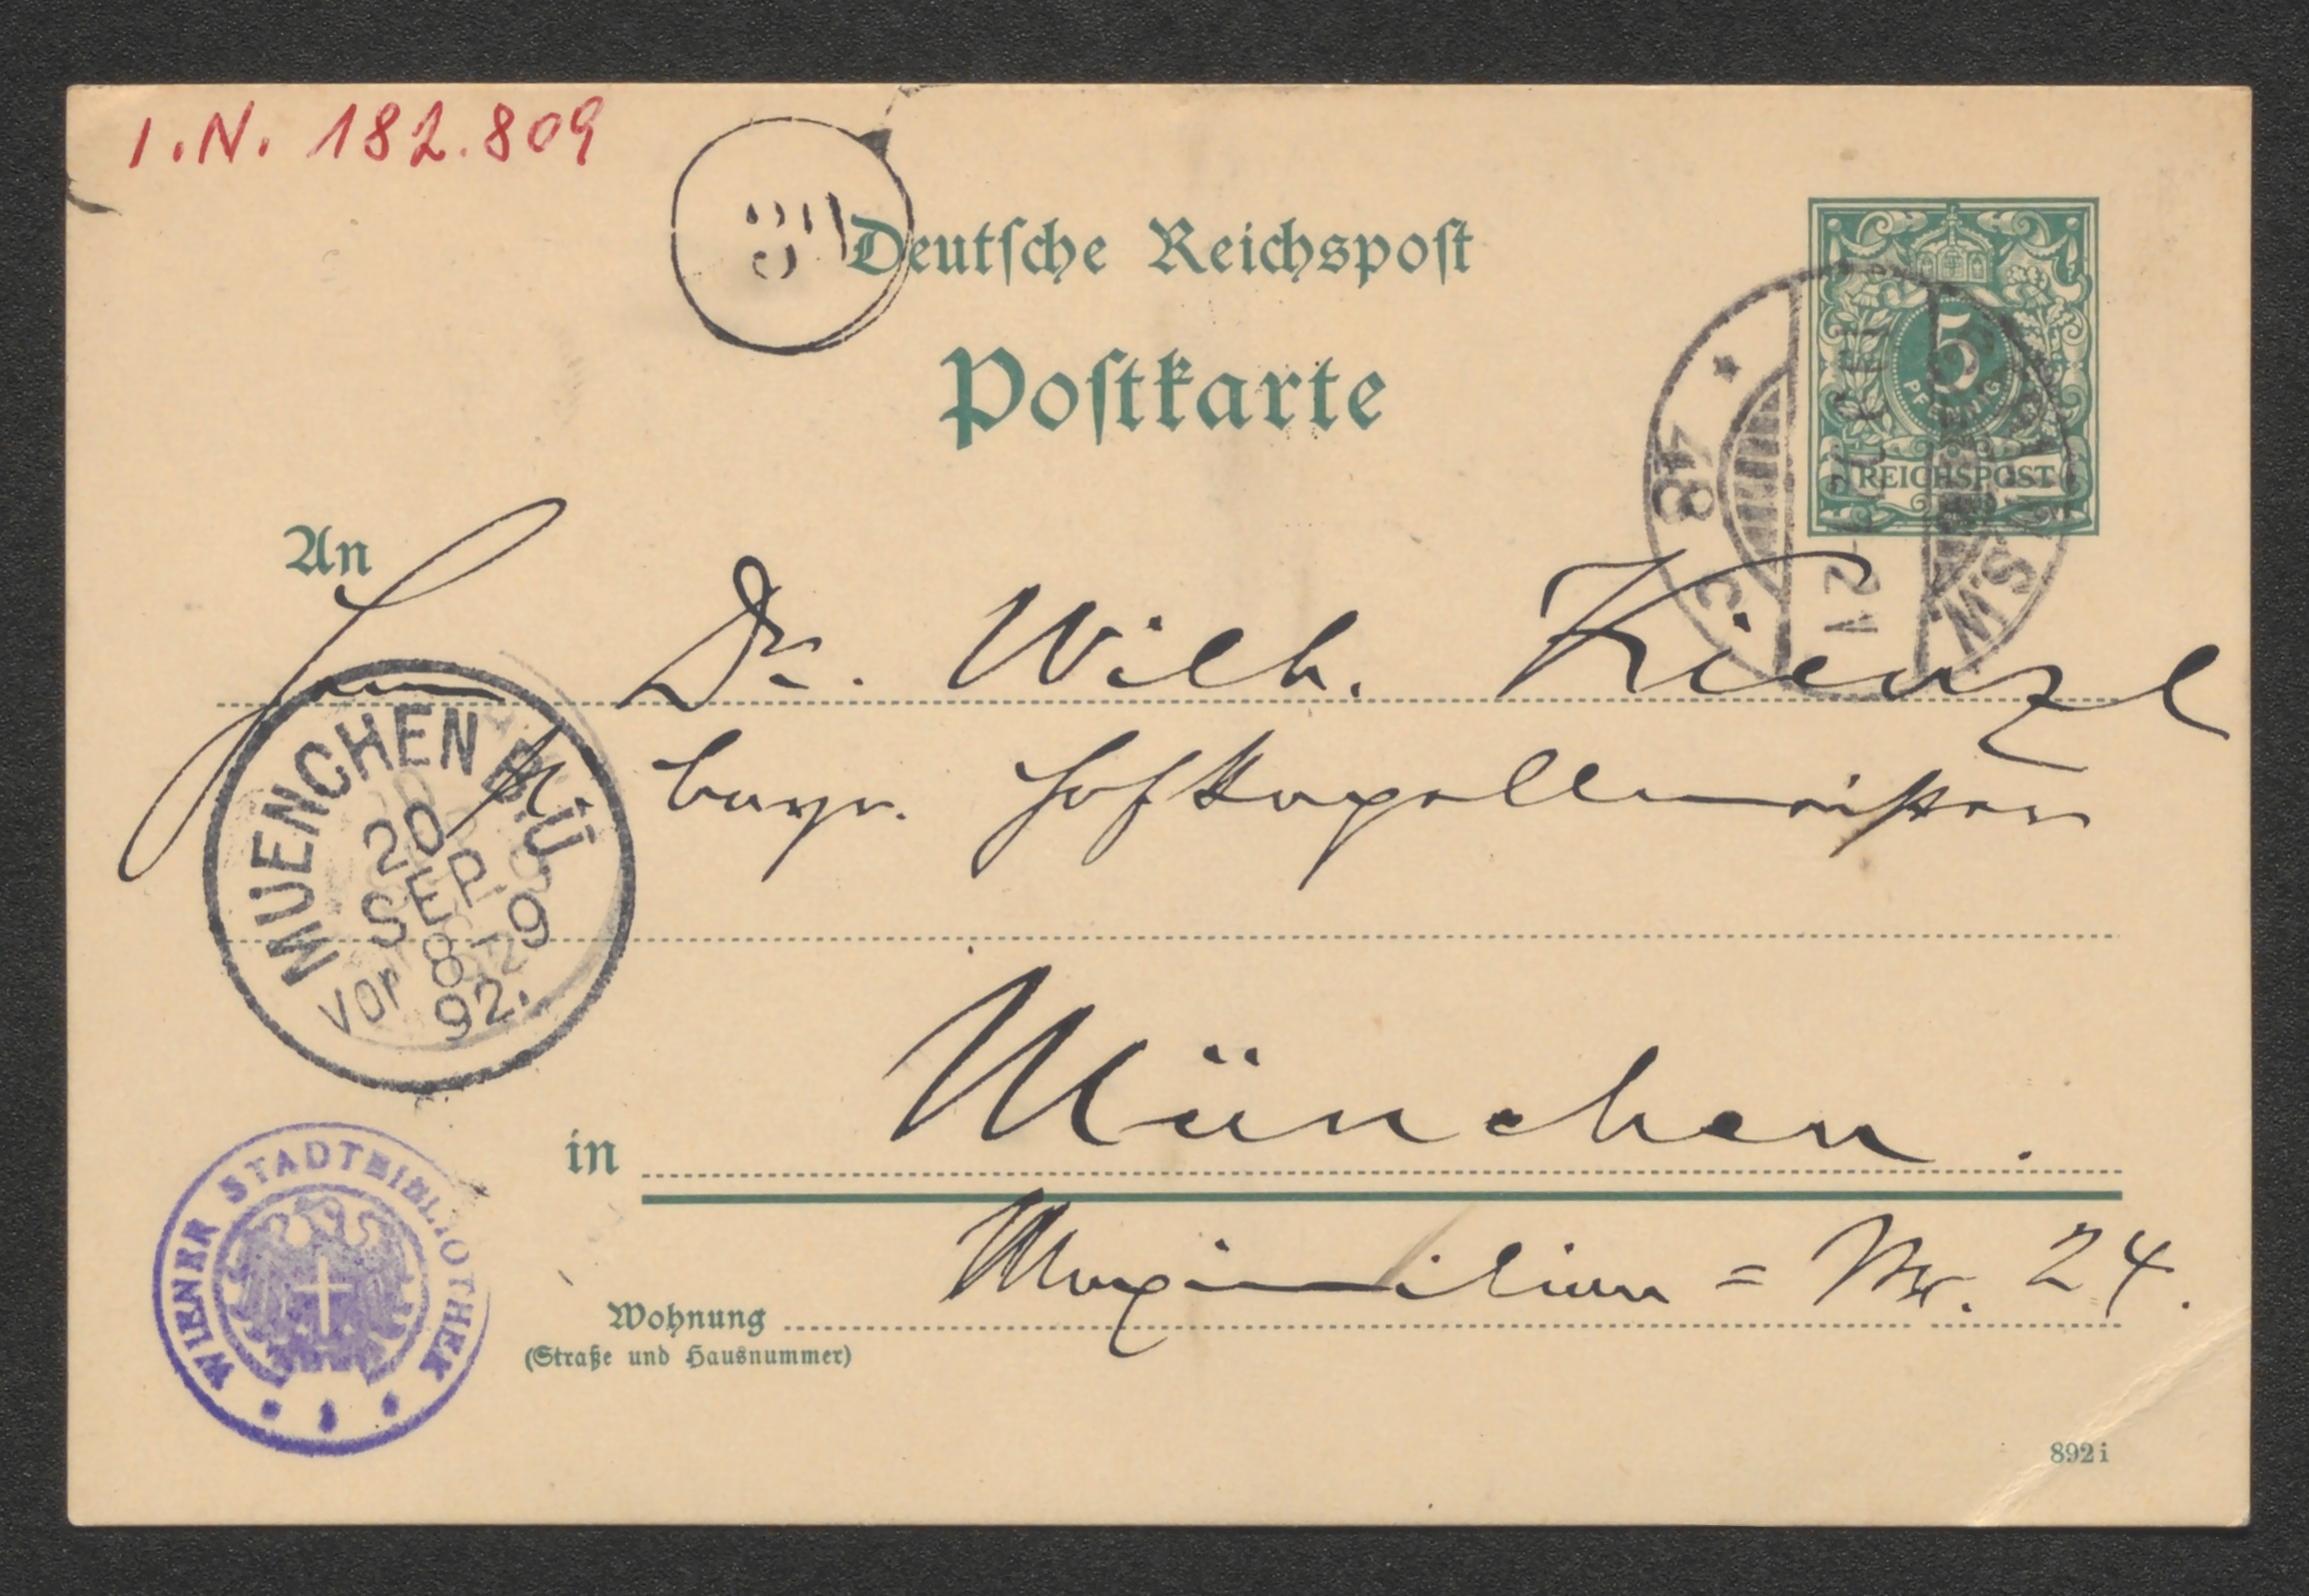 I.N. 182.809
Deutsche Reichspost
Postkarte
5
PFENNIG
REICHSPOST
S.W.
48
c
An
Herrn Dr. Wilh. Kienzl
k. bayr. Hofkapellmeister
MUENCHEN B.Ü
20
SEP. 9
Vor 8
92.
in München.
Maximilian = Str. 24.
Wohnung
(Straße und Hausnummer)
WIENER STADTBIBLIOTHEK
892 i